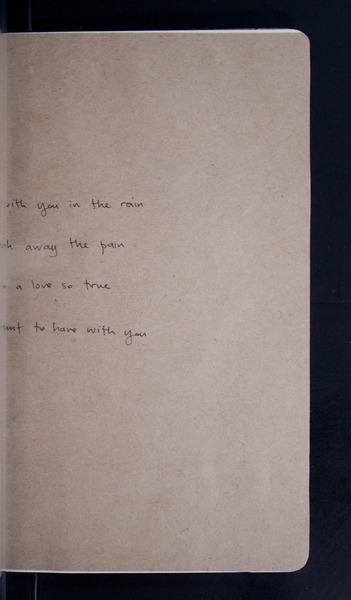 with you in the rain
away the pain
a love so true
to have with you